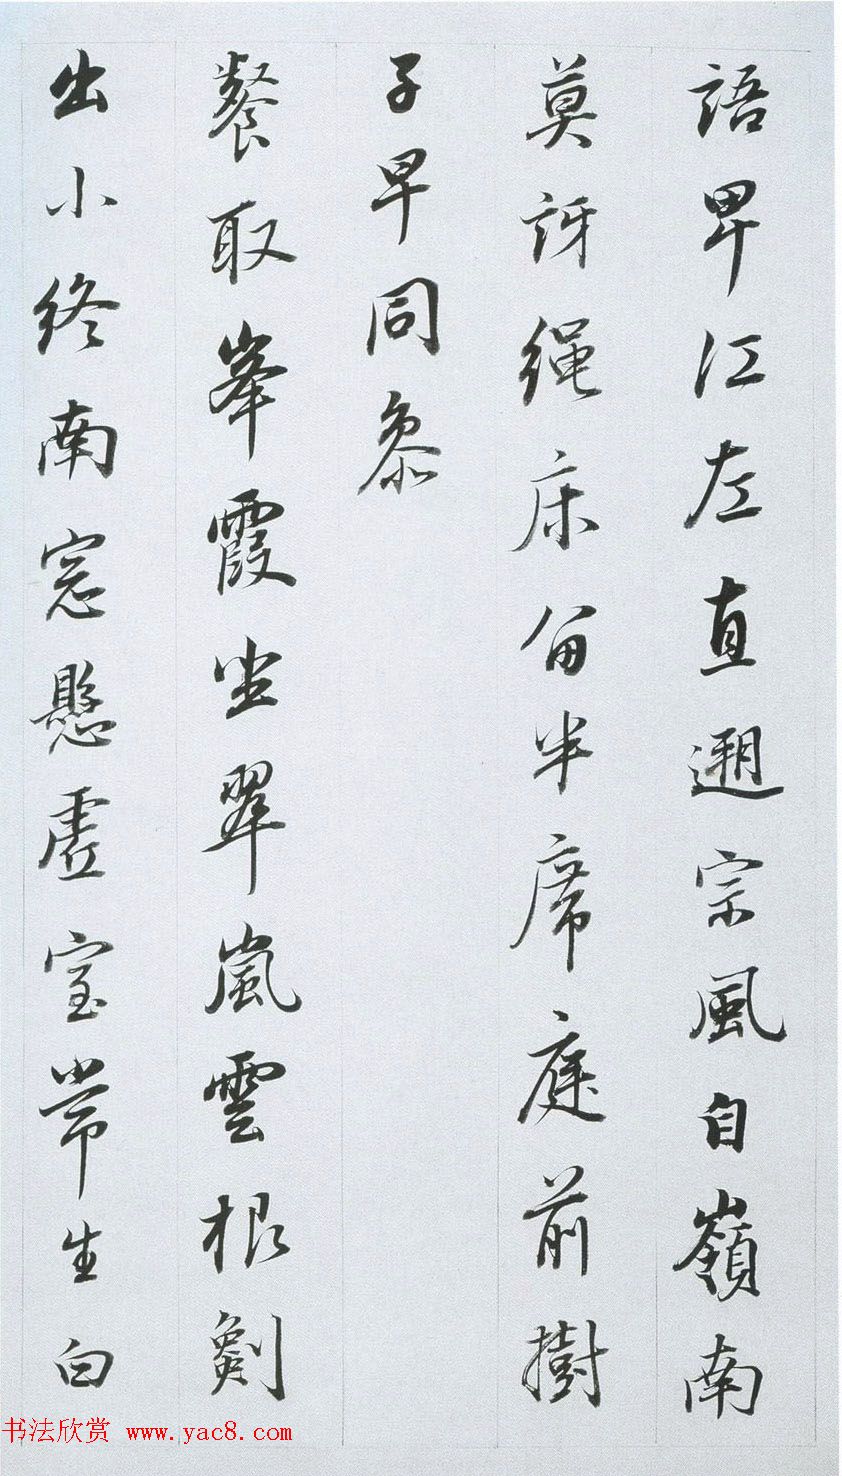 語卑江左直遡宗風自嶺南
莫訝繩床留半席庭前樹
子早同參
餐取峯霞坐翠嵐雲根劖
出小終南窓懸虛室常生白
书法欣赏 www.yac8.com